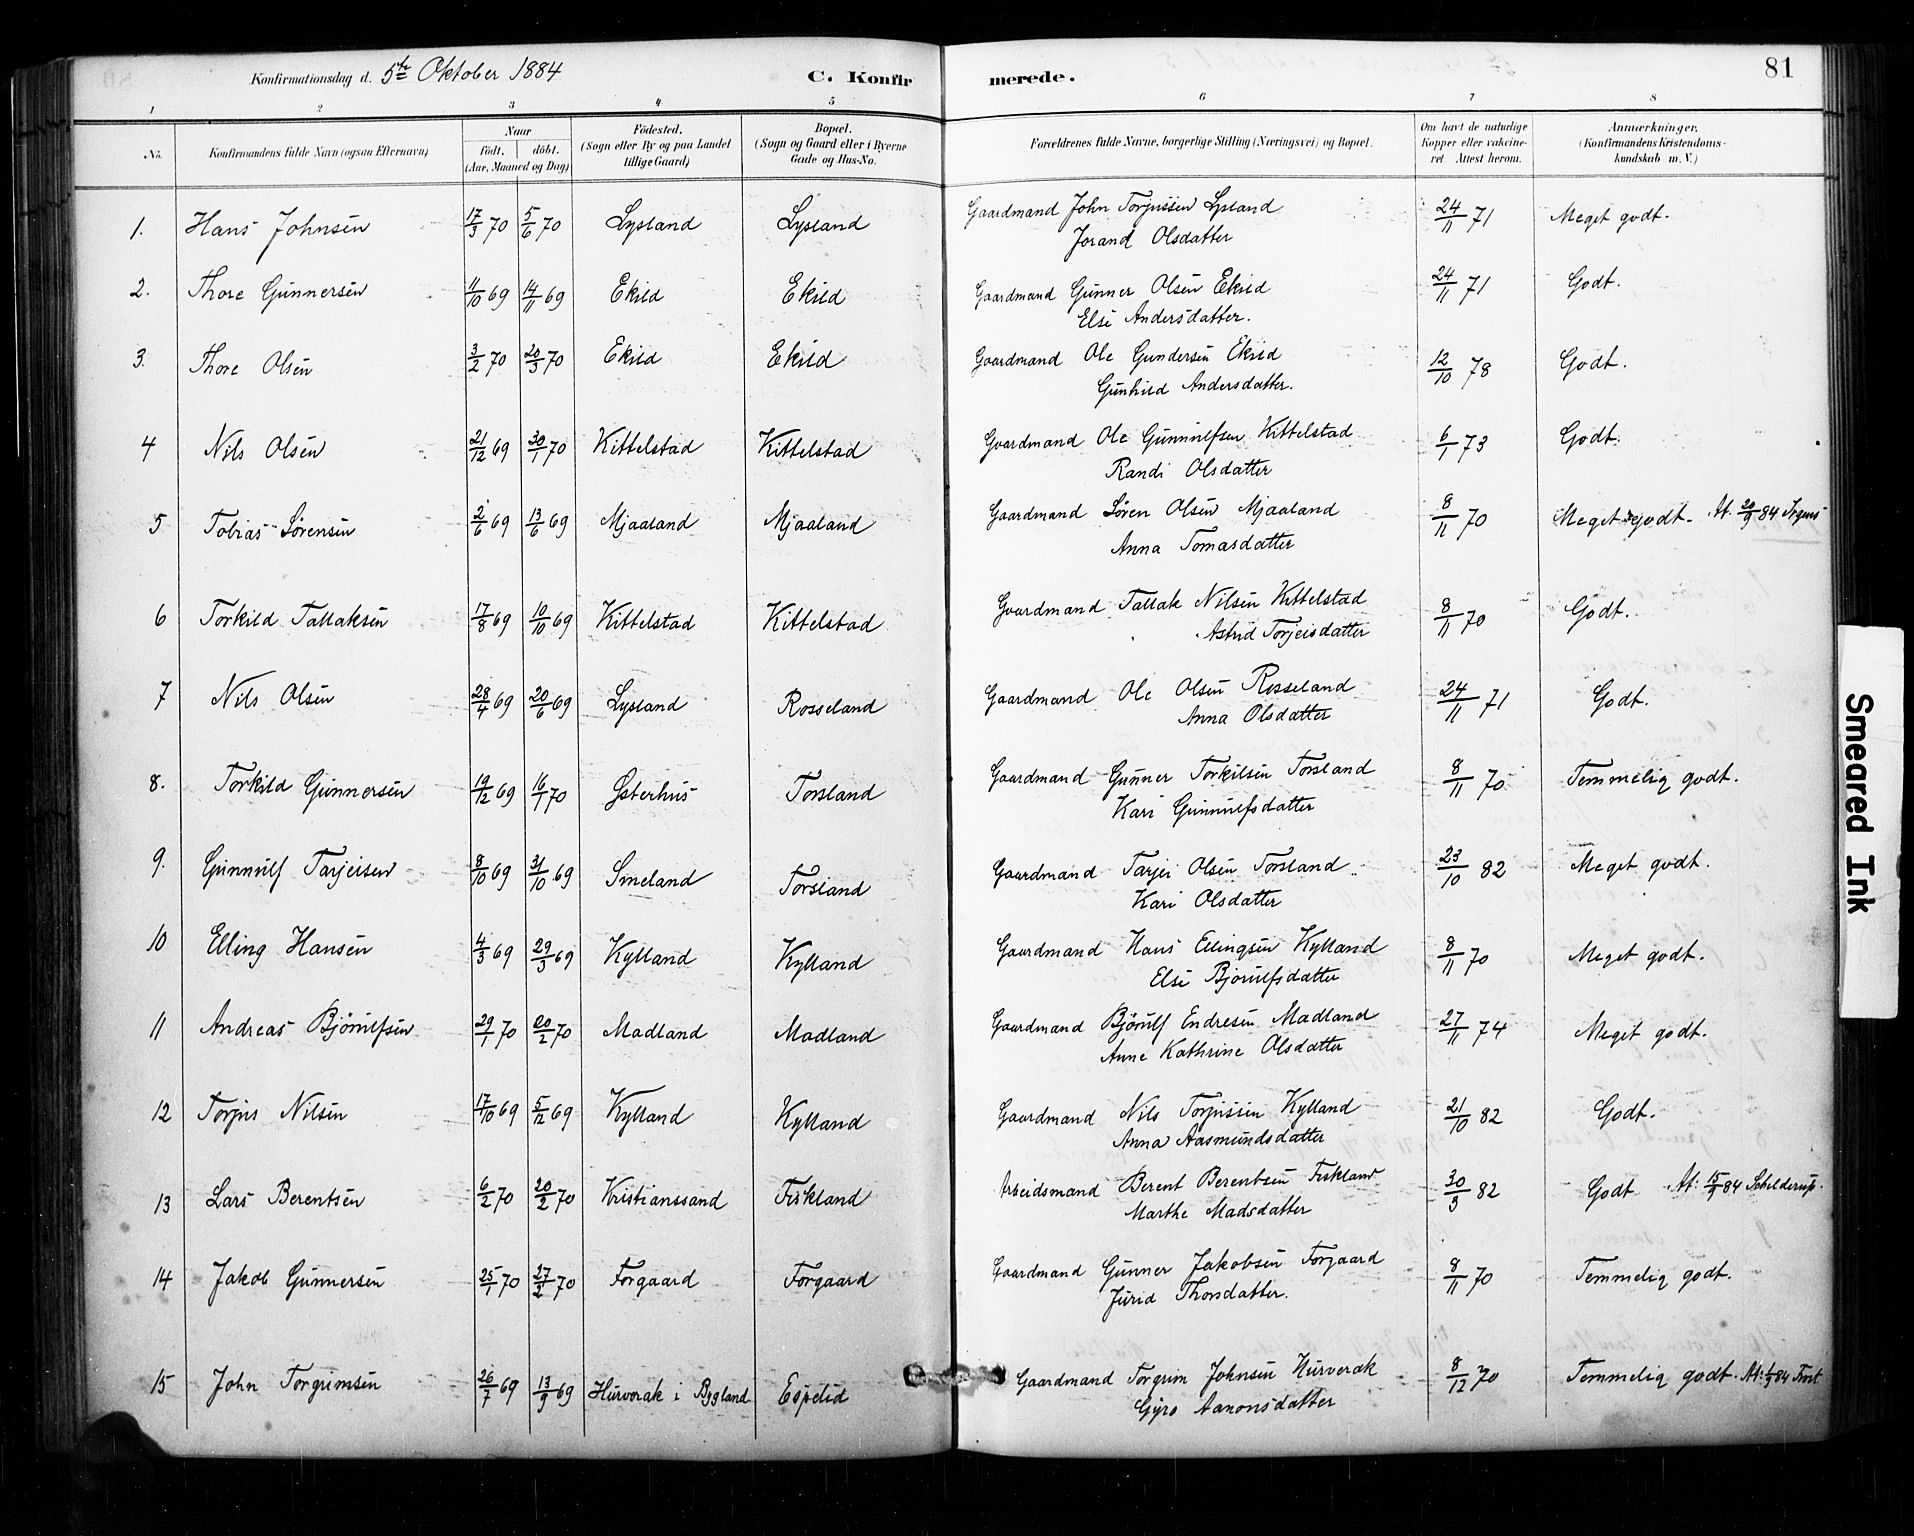 Konfirmationsdag d. 5te Oktober 1884 C. Konfirmerede. 81
1 2 3 4 5 6 7 8
No. Konfirmandens fulde Navn (ogsaa Efternavn) Naar født, døbt. (Aar, Maaned og Dag) Fødested. (Sogn eller By og paa Landet tillige Gaard) Bopæl. (Sogn og Gaard eller i Byerne Gade og Hus-No. Forældrenes fulde Navne, borgerlige Stilling (Næringsvei) og Bopæl. Om havt de naturlige Kopper eller vakcineret Attest herom. Anmærkninger. (Konfirmandens Kristendomskundskab m. V.)
1. Hans Johnsen 17/3 70 5/6 70 Lysland Lysland Gaardmand John Torjussen Lysland 24/11 71 Meget godt.
Jorand Olsdatter
2. Thore Gunnersen 11/10 69 14/11 69 Ekild Ekild Gaardmand Gunner Olsen Ekild 24/11 71 Godt.
Else Andersdatter.
3. Thore Olsen 3/2 70 20/3 70 Ekild Ekild Gaardmand Ole Gundersen Ekild 12/10 78 Godt.
Gunhild Andersdatter.
4 Nils Olsen 21/12 69 30/1 70 Kittelstad Kittelstad Gaardmand Ole Gunnulfsen Kittelstad 6/1 73 Godt.
Randi Olsdatter
5 Tobias Sørensen 2/6 69 13/6 69 Mjaaland Mjaaland Gaardmand Søren Olsen Mjaaland 8/11 70 Meget godt. At. 20/9 84 Irgens
Anna Tomasdatter
6 Torkild Tallaksen 17/8 69 10/10 69 Kittelstad Kittelstad Gaardmand Tallak Nilsen Kittelstad 8/11 70 Godt.
Astrid Torjeisdatter
7 Nils Olsen 28/4 69 20/6 69 Lysland Rosseland Gaardmand Ole Olsen Rosseland 24/11 71 Godt.
Anna Olsdatter
8. Torkild Gunnersen 19/12 69 16/1 70 Østerhus Torsland Gaardmand Gunner Torkilsen Torsland 8/11 70 Temmelig godt.
Kari Gunnulfsdatter
9. Gunnulf Tarjeisen 8/10 69 31/10 69 Smeland Torsland Gaardmand Tarjei Olsen Torsland 23/10 82 Meget godt.
Kari Olsdatter
10 Elling Hansen 4/3 69 29/3 69 Kylland Kylland Gaardmand Hans Ellingsen Kylland 8/11 70 Meget godt.
Else Bjorulfsdatter
11 Andreas Bjørulfsen 29/1 70 20/2 70 Madland Madland Gaardmand Bjørulf Endresen Madland 27/11 74 Meget godt.
Anne Kathrine Olsdatter
12 Torjus Nilsen 17/10 69 5/12 69 Kylland Kylland Gaardmand Nils Torjussen Kylland 21/10 82 Godt.
Anna Aasmundsdatter
13 Lars Berentsen 6/2 70 20/2 70 Kristianssand Fiskland Arbeidsmand Berent Berentsen Fiskland 30/3 82 Godt At: 15/9 84 Schelderup.
Marthe Madsdatter
14 Jakob Gunnersen 25/1 70 27/2 70 Forgaard Forgaard Gaardmand Gunner Jakobsen Forgaard 8/11 70 Temmelig godt.
Jurid Thorsdatter.
15 John Torgrimsen 26/7 69 13/9 69 Hurverak i Bygland Espelid Gaardmand Torgrim Johnsen Hurverak 8/12 70 Temmelig godt. At: 84
Gyro Aanonsdatter
Smeared Ink